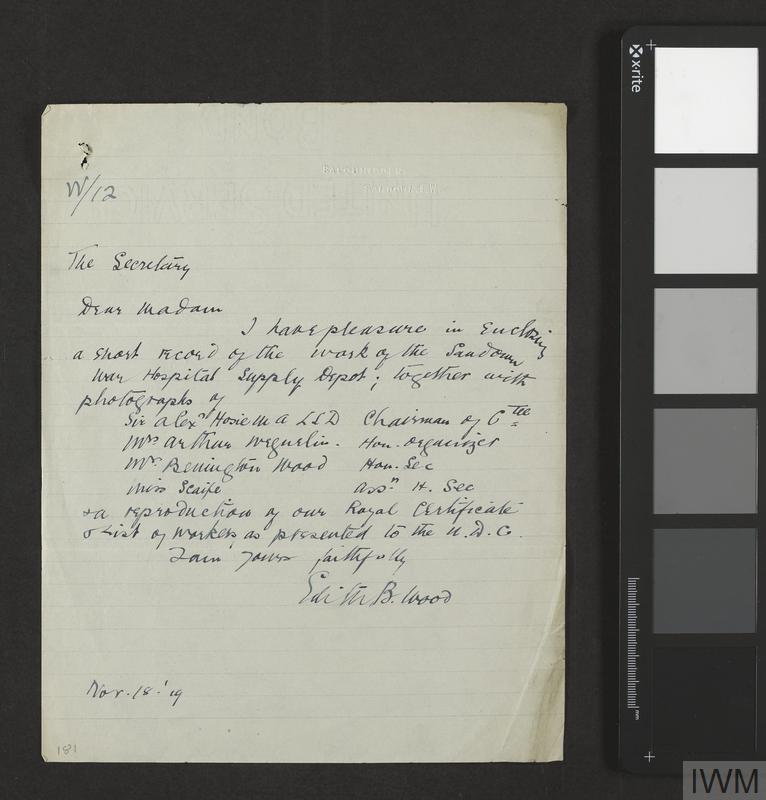 W/12
The Secretary
Dear Madam
I have pleasure in enclosing
a short record of the work of the Sandown
War Hospital Supply Depot; together with
photographs of
Sir Alexr Hosie M A LLD Chairman of Ctee
Mrs Arthur Weguelin. Hon. Organizer
Mrs Benington Wood Hon. Sec
Miss Scaife Assn H. Sec
& a reproduction of our Royal Certificate
& List of workers, as presented to the U.D.C.
I am yours faithfully
Edith B. Wood
Nov. 18. '19
181
x-rite
mm
IWM